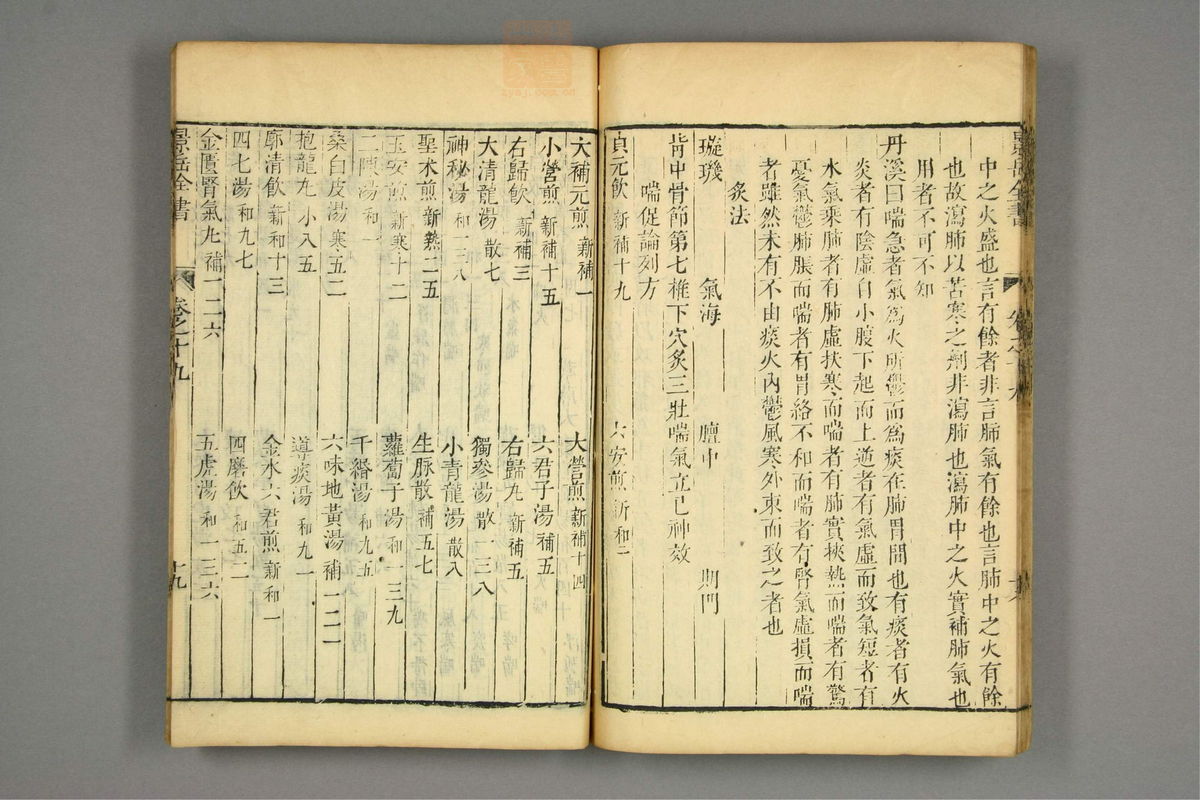 中之火盛也言有餘者非言肺氣有餘也言肺中之火有餘
也故瀉肺以苦寒之劑非瀉肺也瀉肺中之火實補肺氣也
用者不可不知
丹溪曰喘急者氣爲火所鬱而爲痰在肺胃間也有痰者有火
炎者有陰虛自小腹下起而上逆者有氣虛而致氣短者有
水氣乘肺者有肺虛挾寒而喘者有肺實挾熱而喘者有驚
憂氣鬱肺脹而喘者有胃絡不和而喘者有腎氣虛損而喘
者雖然未有不由痰火內鬱風寒外束而致之者也
灸法
璇璣 氣海 膻中 期門
背中骨節第七椎下穴灸三壯喘氣立已神效
喘促論列方
貞元飲 新補十九 六安煎 新和二
景岳全書 卷之十九 十九
大補元煎 新補一 大營煎 新補十四
小營煎 新補十五 六君子湯 補五
右歸飲 新補三 右歸丸 新補五
大清龍湯 散七 獨參湯 散一三八
神秘湯 和一三八 小青龍湯 散八
聖朮煎 新熱二五 生脉散 補五七
六安煎 新寒十二 蘿蔔子湯 和一三九
二陳湯 和一 千緡湯 和九五
桑白皮湯 寒五二 六味地黃湯 補一二一
抱龍丸 小八五 導痰湯 和九一
廓清飲 新和十三 金水六君煎 新和一
四七湯 和九七 四磨飲 和五二
金匱腎氣丸 補一二六 五虎湯 和一三六
景岳全書 卷之十九 十九